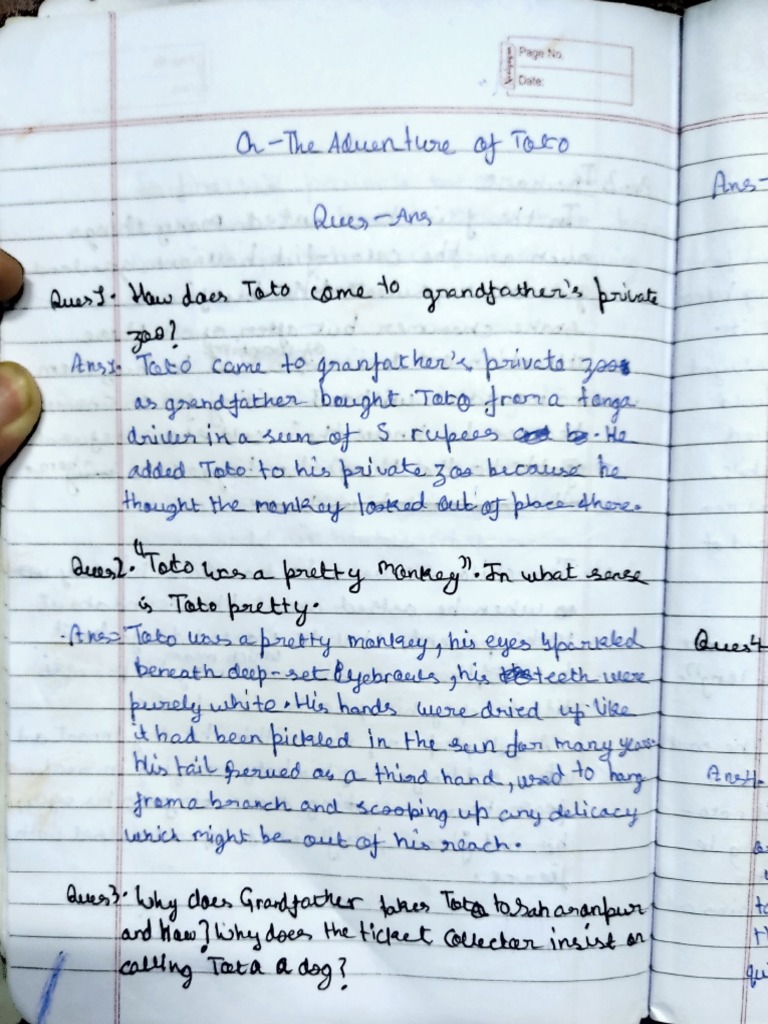 Page No.
Date:
Ch - The Adventure of Toto
Ques - Ans
Ques 1. How does Toto come to grandfather's private
zoo?
Ans 1. Toto came to granfather's private zoo
as grandfather bought Toto from a tonga
driver in a sum of 5 rupees. He
added Toto to his private zoo because he
thought the monkey looked out of place there.
Ques 2. "Toto was a pretty monkey". In what sense
is Toto pretty.
Ans = Toto was a pretty monkey, his eyes sparkled
beneath deep-set eyebrows, his teeth were
purely white. His hands were dried up like
it had been pickled in the sun for many years.
His tail served as a third hand, used to hang
from a branch and scooping up any delicacy
which might be out of his reach.
Ques 3. Why does Grandfather takes Toto to Saharanpur
and how? Why does the ticket collector insist on
calling Toto a dog?
Ans -
Ques 4
Ans 4.